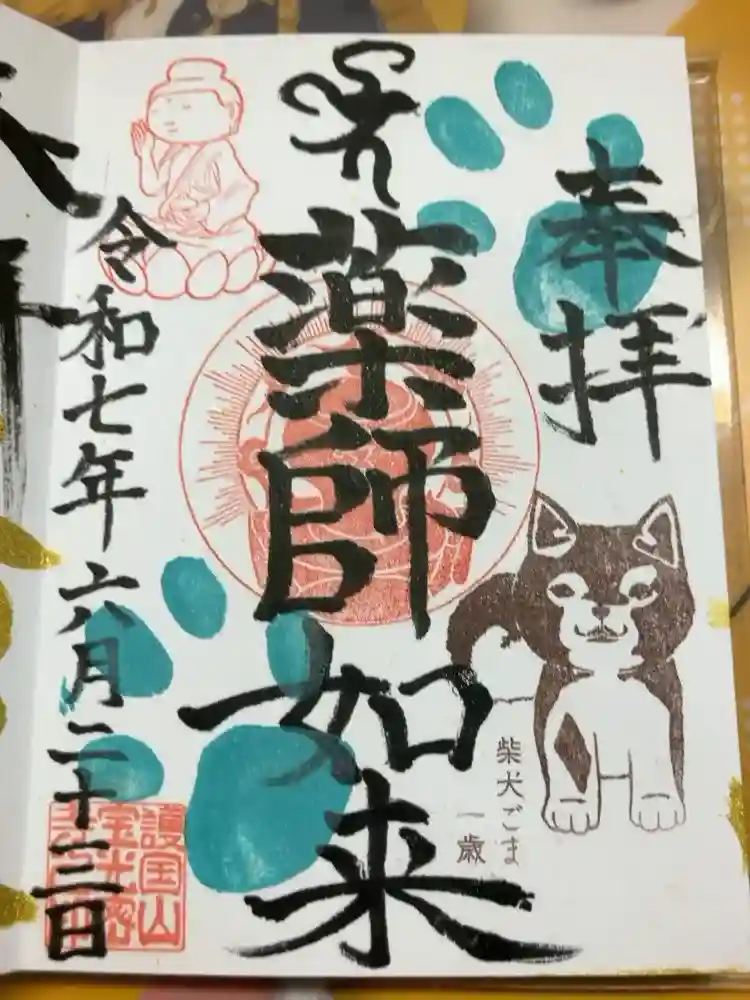 奉拝
薬師如来
柴犬ごま
一歳
令和七年六月二十三日
護国山